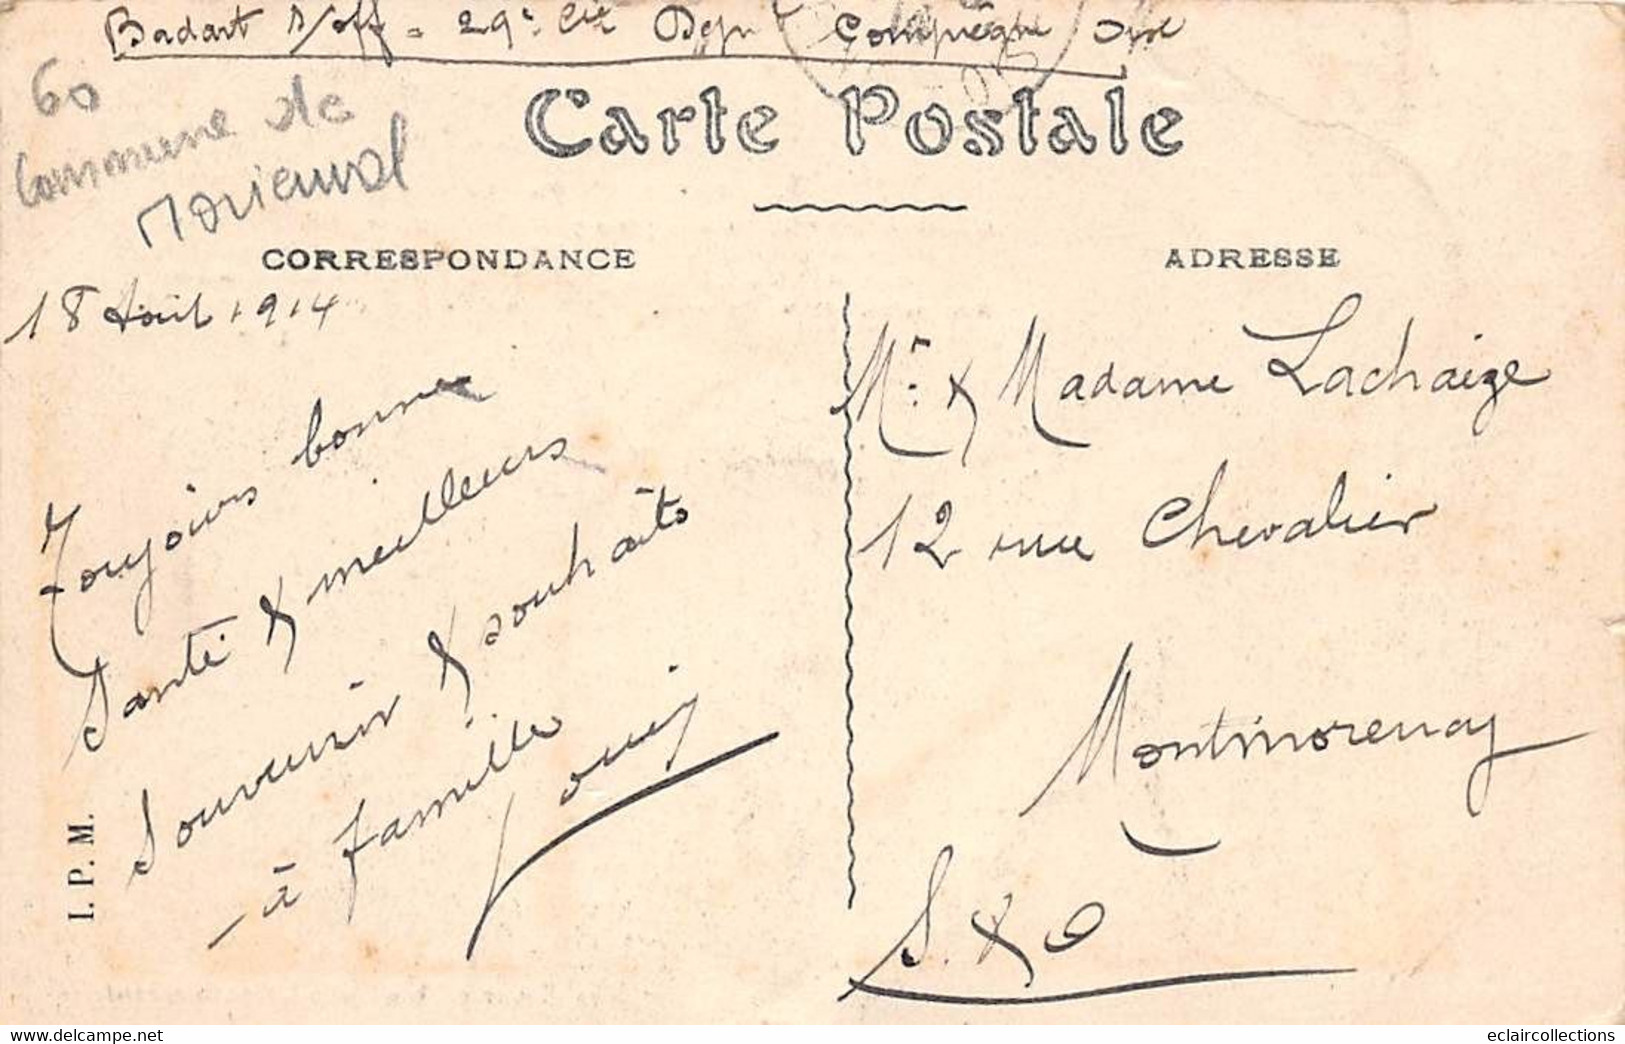 Badart s/off = 29e Cie Dépt Compiègne Oise
60
Commune de
Morienval
Carte Postale
CORRESPONDANCE
ADRESSE
18 Août 1914
Toujours bonne
Santé & meilleurs
Souvenir & souhaits
à famille
Louis
Mr & Madame Lachaize
12 rue Chevalier
Montmorency
S. & O
I. P. M.
eclaircollections